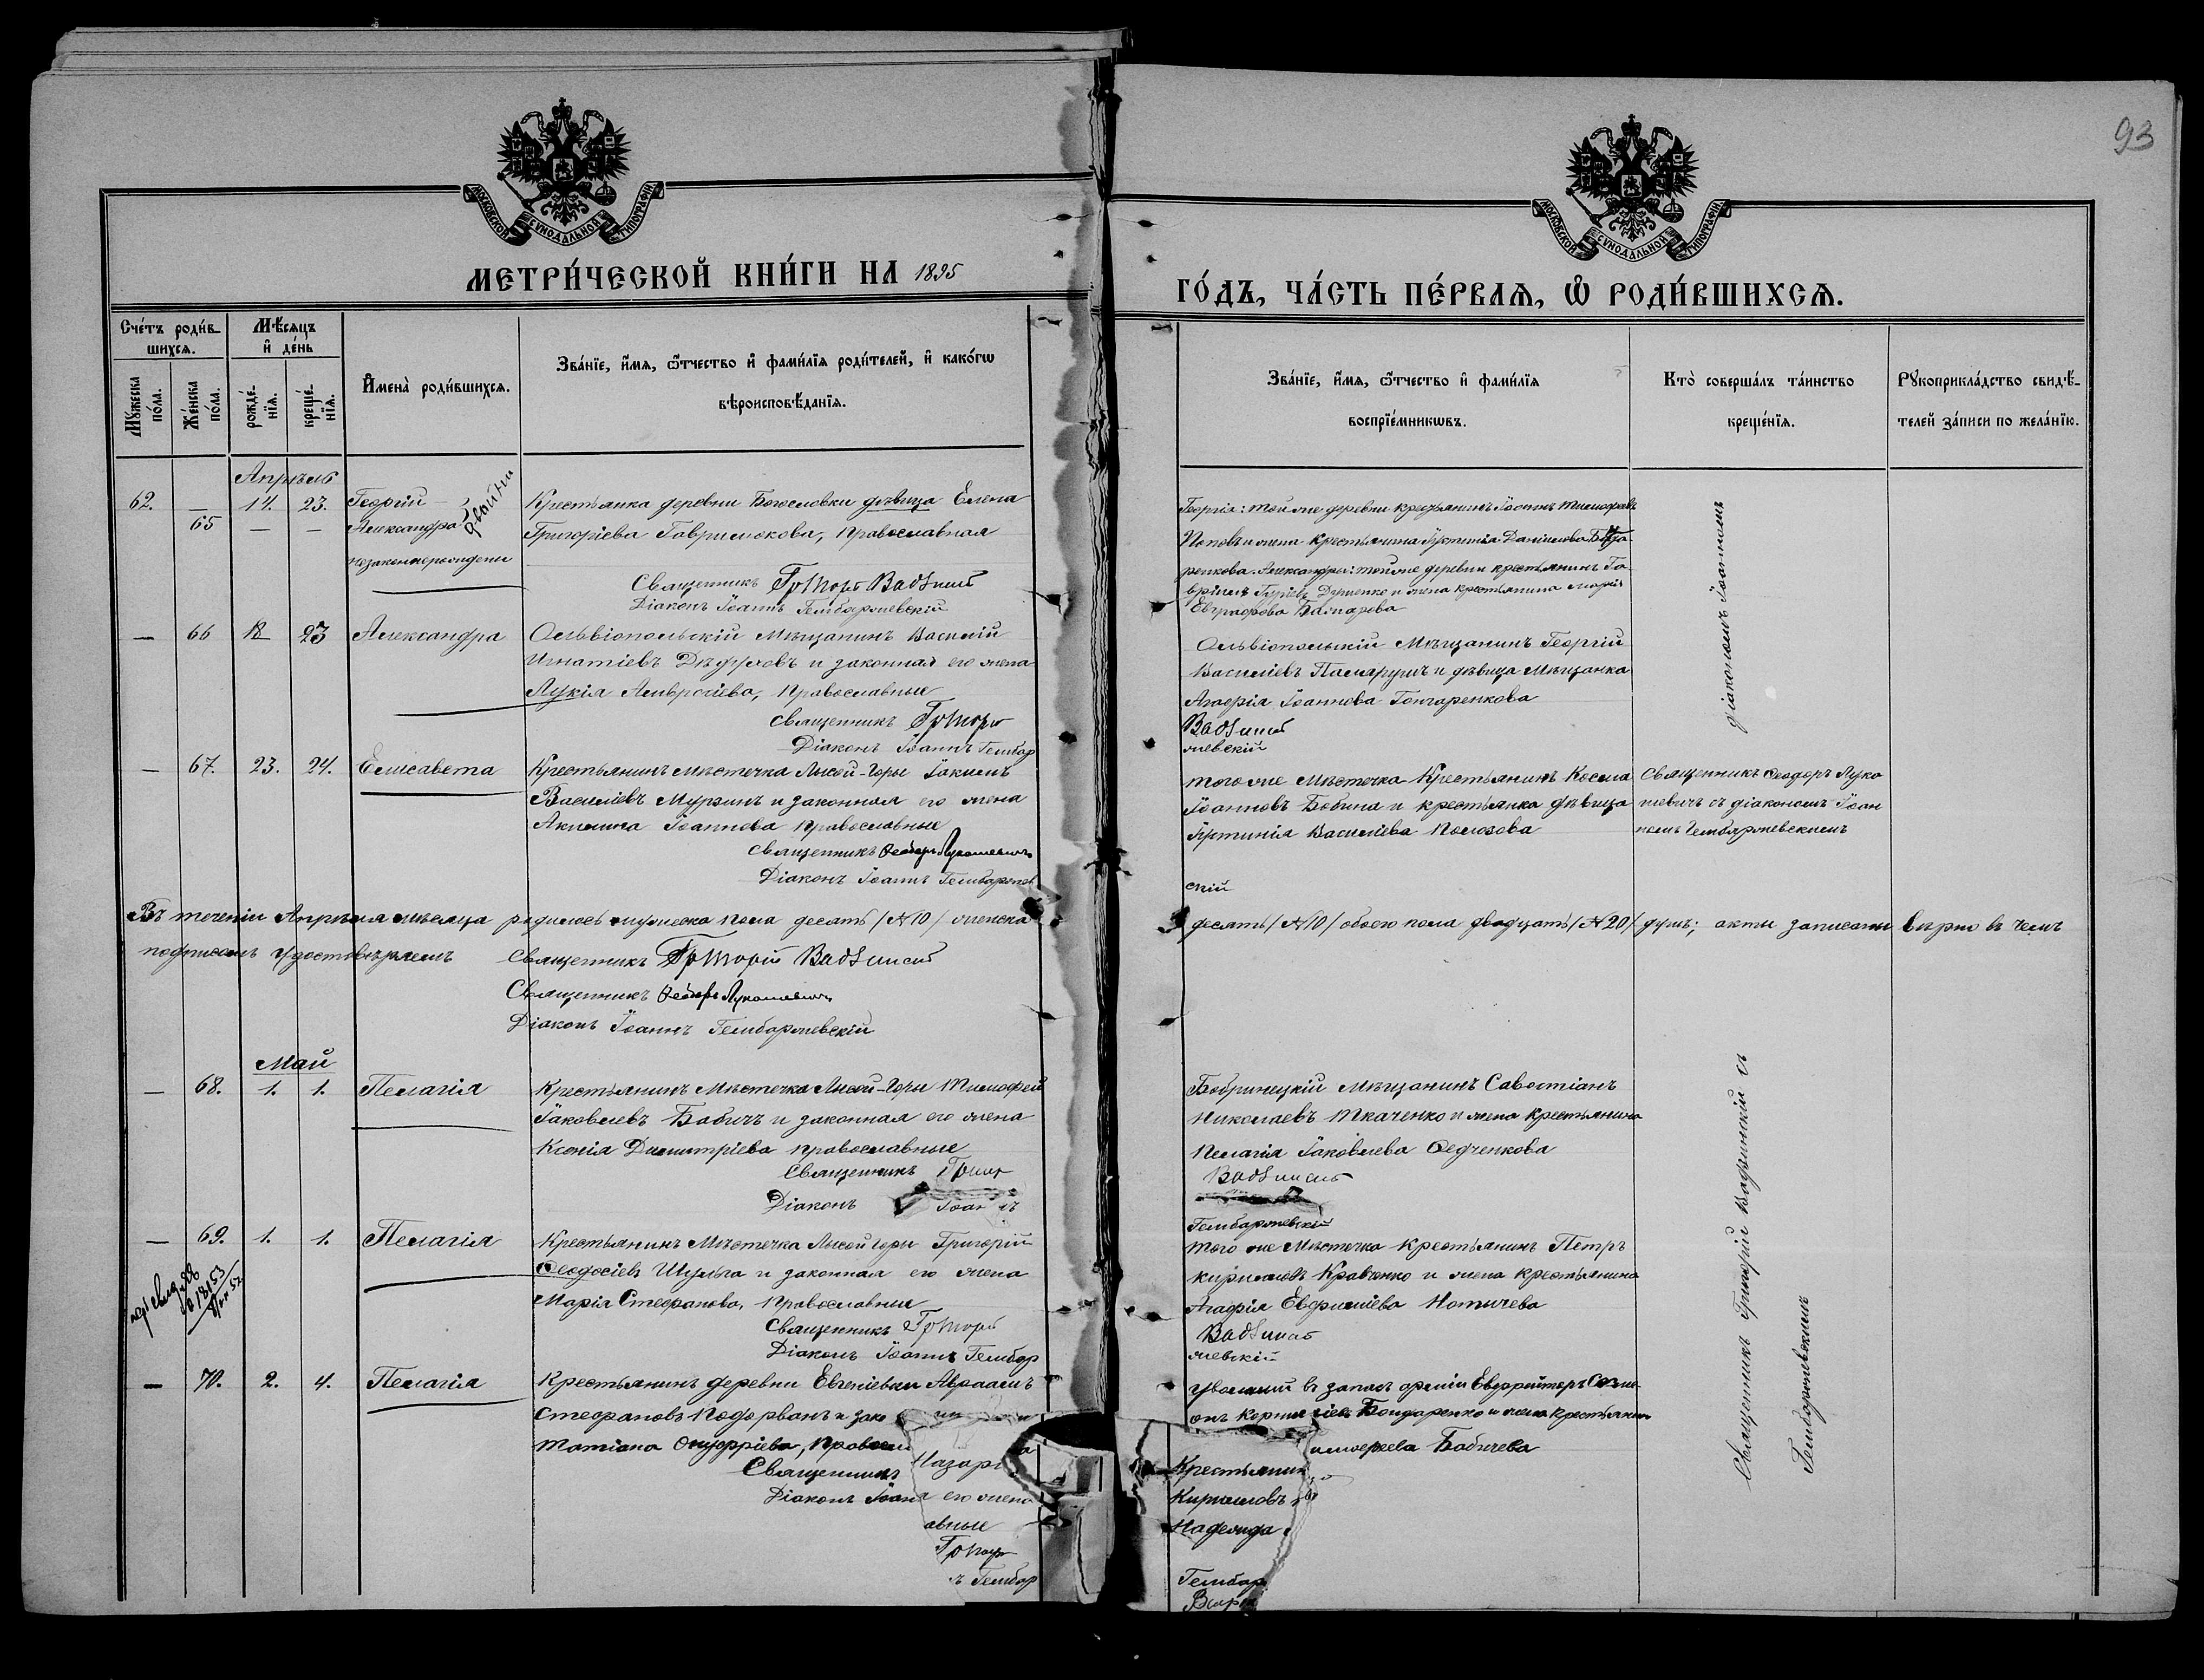 93
МОСКОВСКОЙ СѴНОДАЛЬНОЙ ТИПОГРАФІИ
МОСКОВСКОЙ СѴНОДАЛЬНОЙ ТИПОГРАФІИ
МЕТРИ́ЧЕСКОЙ КНИ́ГИ НА 1895
ГО́ДЪ, ЧА́СТЬ ПЕ́РВАѦ, Ѽ РОДИ́ВШИХСѦ.
Сче́тъ роди́в-
шихсѧ.
Мѣ́сѧцъ
и҆ де́нь
Мꙋ́жеска
по́ла.
Же́нска
по́ла.
рожде́-
нїѧ.
креще́-
нїѧ.
И҆мена̀ роди́вшихсѧ.
Зва́нїе, и҆́мѧ, ѻ҆́тчество и҆ фами́лїѧ роди́телей, и҆ како́гѡ
вѣроисповѣ́данїѧ.
Зва́нїе, и҆́мѧ, ѻ҆́тчество и҆ фами́лїѧ
воспрїе́мникѡвъ.
Кто̀ соверша́лъ та́инство
креще́нїѧ.
Рꙋкоприкла́дство свидѣ́-
телей за́писи по жела́нїю.
Апрѣль
62. — 14. 23. Георгій
65 — — Александра
двойни
незаконнорожденн
Крестьянка деревни Богословки дѣвица Елена
Григоріева Гаврилюкова, православная
Священникъ Григорій Вадзинскій
Діаконъ Іоаннъ Гембаржевскій
Георгія: той же деревни крестьянинъ Іоаннъ
Поповъ и жена крестьянина Іустинія Даніилова
ренкова. Александры: той же деревни крестьянинъ Га-
вріилъ и жена крестьянина Марія
Евграфова
діакономъ Іоанномъ
— 66 18 23 Александра
Ольвіопольскій мѣщанинъ Василій
Игнатіевъ Дѣдуховъ и законная его жена
Лукія Амвросіева, православные
Священникъ Григорій
Діаконъ Іоаннъ Гембар
Ольвіопольскій мѣщанинъ Георгій
Василіевъ и дѣвица мѣщанка
Агафія Іоаннова Гончаренкова
Вадзинскій
жевскій
— 67. 23. 24. Елисавета
Крестьянинъ мѣстечка Лысой-Горы Іакимъ
Василіевъ Мурзинъ и законная его жена
Акилина Іоаннова православные
Священникъ Ѳеодоръ Лукашевичъ
Діаконъ Іоаннъ Гембаржев
того же мѣстечка крестьянинъ Косма
Іоанновъ Бабина и крестьянка дѣвица
Іустинія Василіева Полозова
скій
Священникъ Ѳеодоръ Лука
шевичъ съ діакономъ Іоан
номъ Гембаржевскимъ
Въ теченіи Апрѣля мѣсяца родилось мужеска пола десять /№10/ женска
десять /№10/ обоего пола двадцать /№20/ душъ; акты записаны вѣрно въ чемъ
подписомъ удостовѣряемъ Священникъ Григорій Вадзинскій
Священникъ Ѳеодоръ Лукашевичъ
Діаконъ Іоаннъ Гембаржевскій
Май
— 68. 1. 1. Пелагія
Крестьянинъ мѣстечка Лысой-Горы Тимофей
Іаковлевъ Бабичъ и законная его жена
Ксенія Димитріева православные
Священникъ Григор
Діаконъ Іоаннъ
Бобринецкій мѣщанинъ Савостіанъ
Николаевъ Ткаченко и жена крестьянина
Пелагія Іаковлева Ѳедченкова
Вадзинскій
Гембаржевскій
— 69. 1. 1. Пелагія
Крестьянинъ мѣстечка Лысой Горы Григорій
Ѳеодосіевъ Шульга и законная его жена
Марія Стефанова, православные
Священникъ Григорій
Діаконъ Іоаннъ Гембар
того же мѣстечка крестьянинъ Петръ
Кириловъ Кравченко и жена крестьянина
Агафія Евфиміева
Вадзинскій
жевскій
— 70. 2. 4. Пелагія
Крестьянинъ деревни Евгеніевки Авраамъ
Стефановъ Подорванъ и зако
Татіана Онуфріева, правосл
Священникъ
Діаконъ Іоанн
Назарі
его жена
авные
Григор
ъ Гембар
уволеный въ запасъ арміи Ефрейторъ
Корниліевъ Бондаренко и жена крестьянин
Бабичева
Крестьянин
Кириловъ
Надежда
Гембар
Священникъ Григорій Вадзинскій съ
Гембаржевскимъ